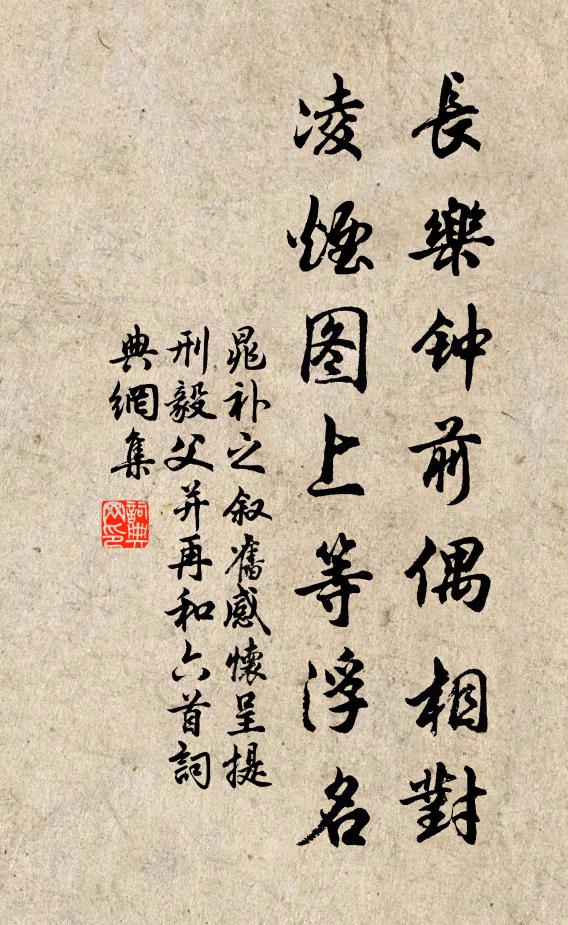 長樂钟前偶相對
凌煙图上等浮名
晁补之叙舊感懷呈提
刑毅父并再和六首詞
典網集
詞典
网印